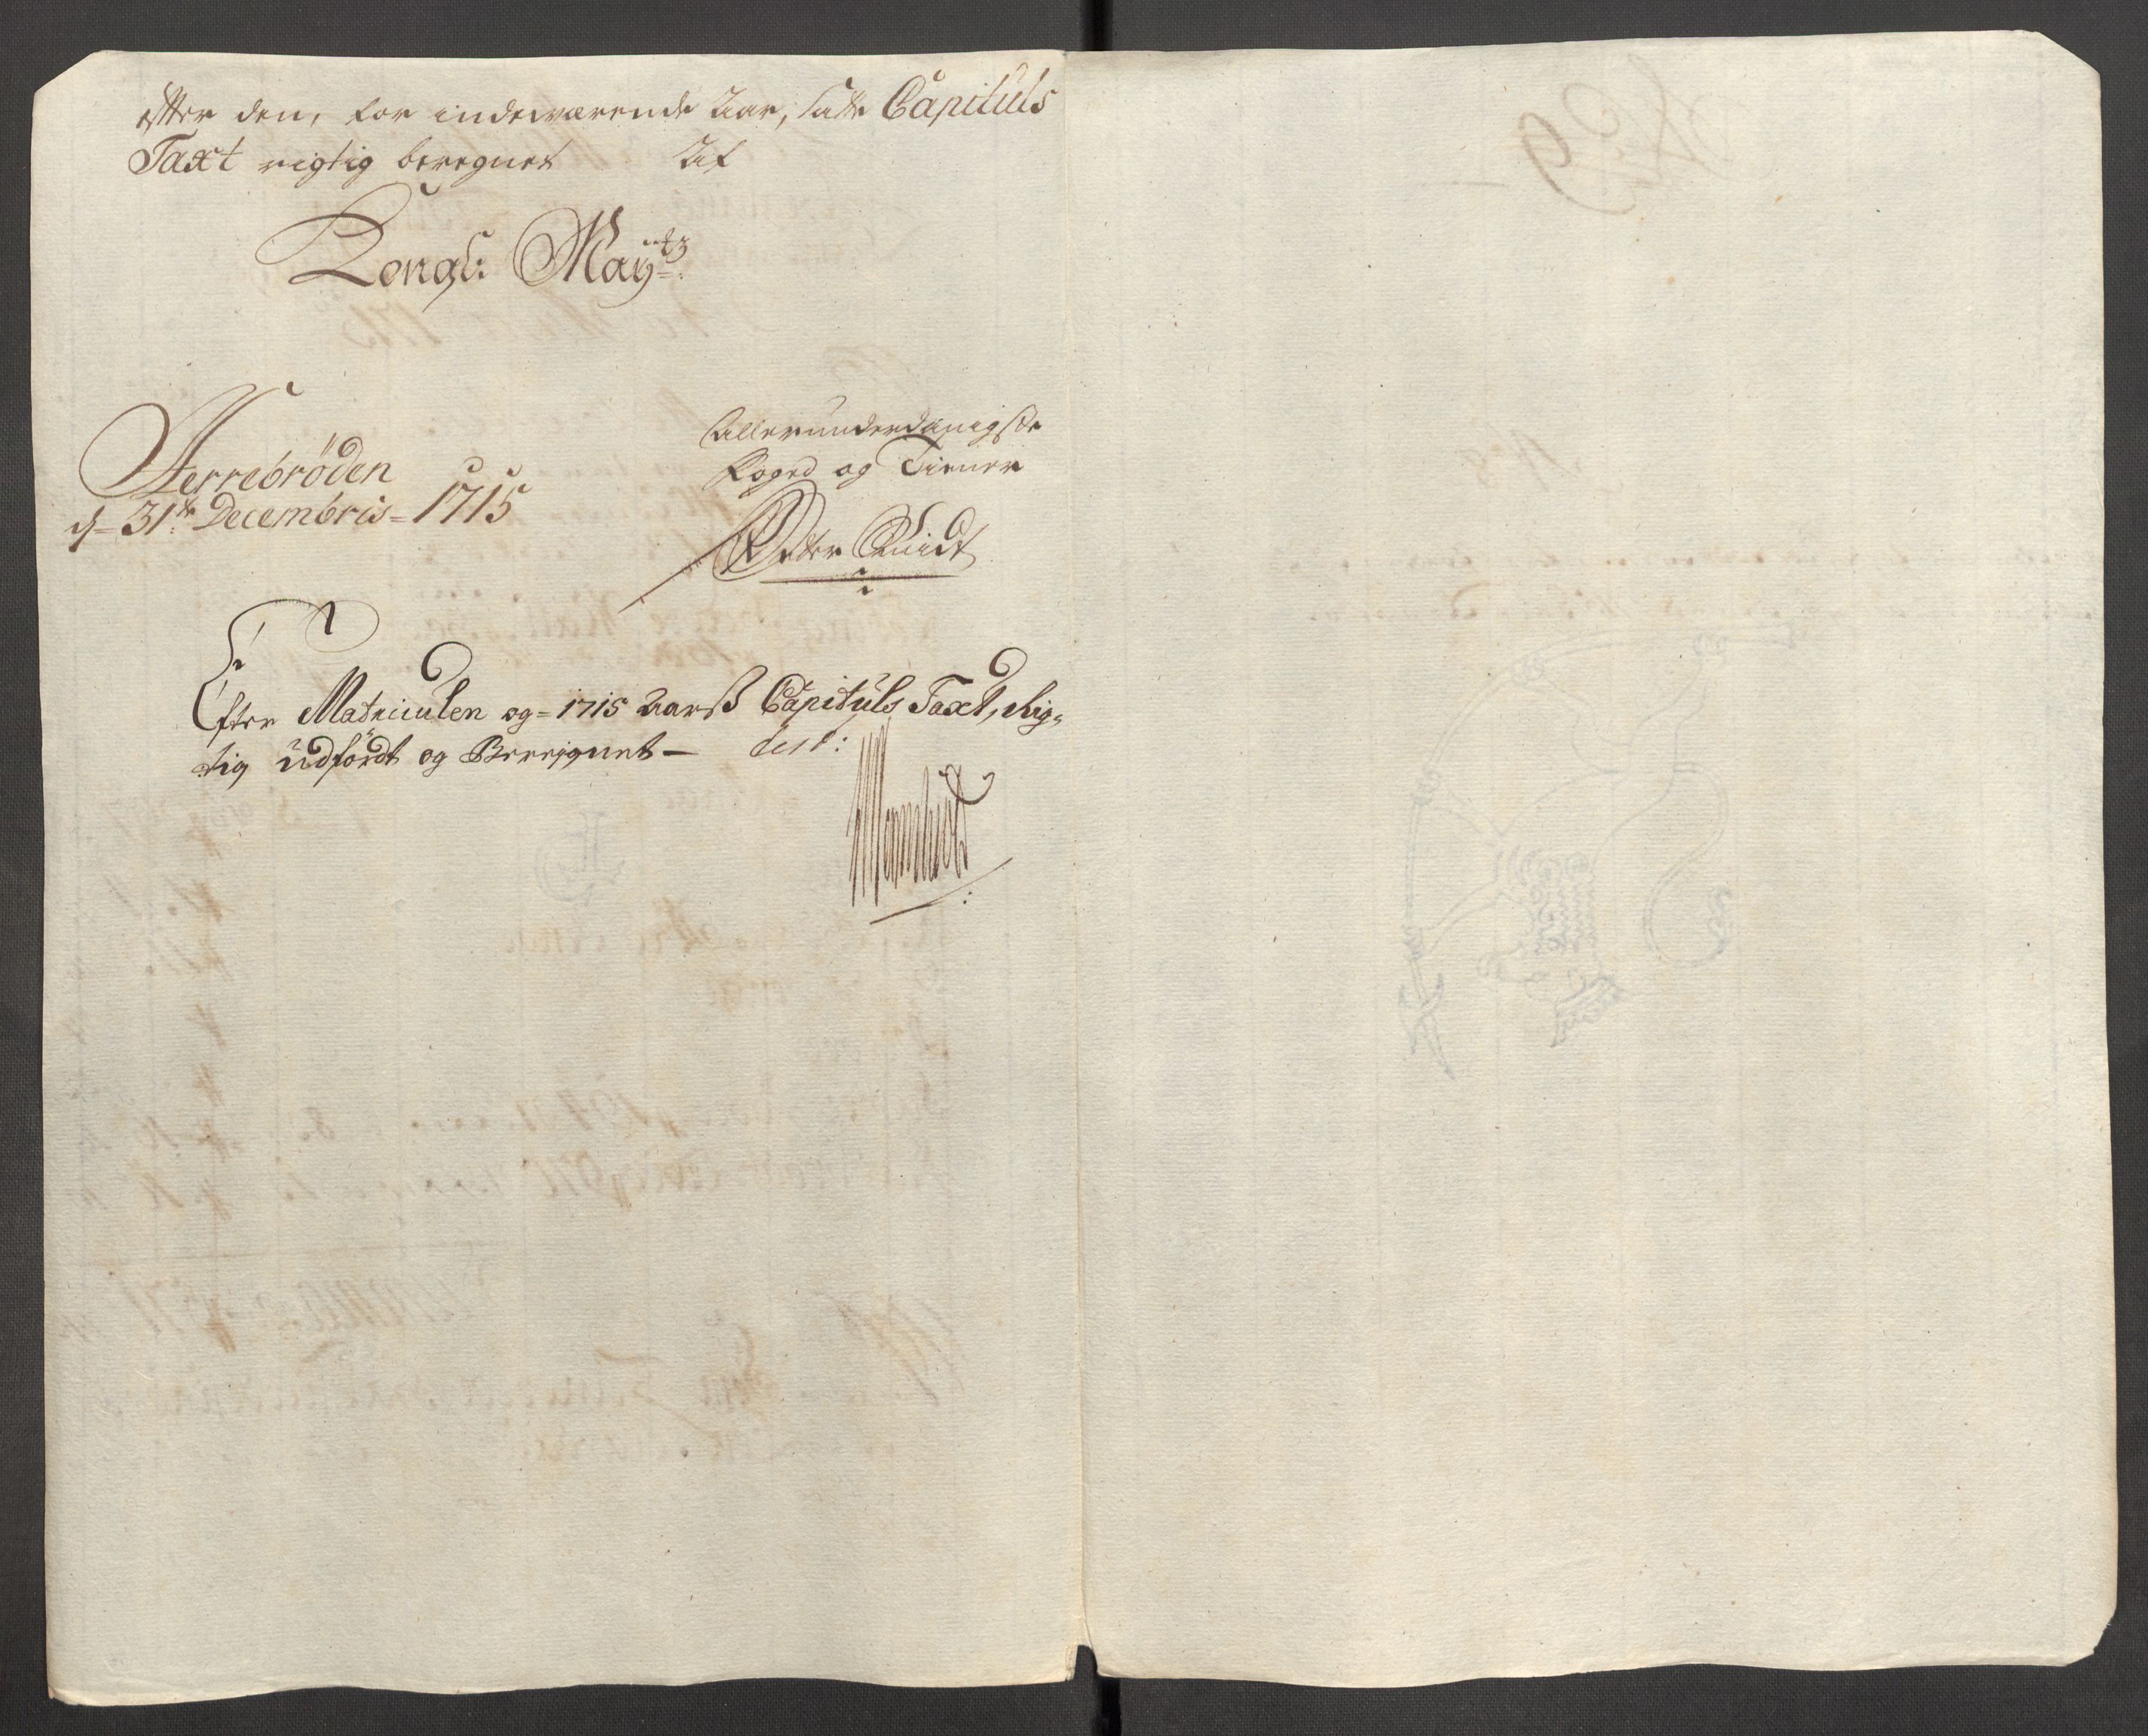 efter den, for indeværende Aar, satte Capituls
Taxt rigtig beregnet Af
Kongl: Mayᵗᵗᶻ:
Herrebröden
d= 31ᵗᵉ: Decembris= 1715
Allerunderdanigste
Foged og Tiener
Peter
Efter Matriculen og= 1715 Aarß Capituls Taxt, Rig=
tig üdfördt og Beregnet — test: